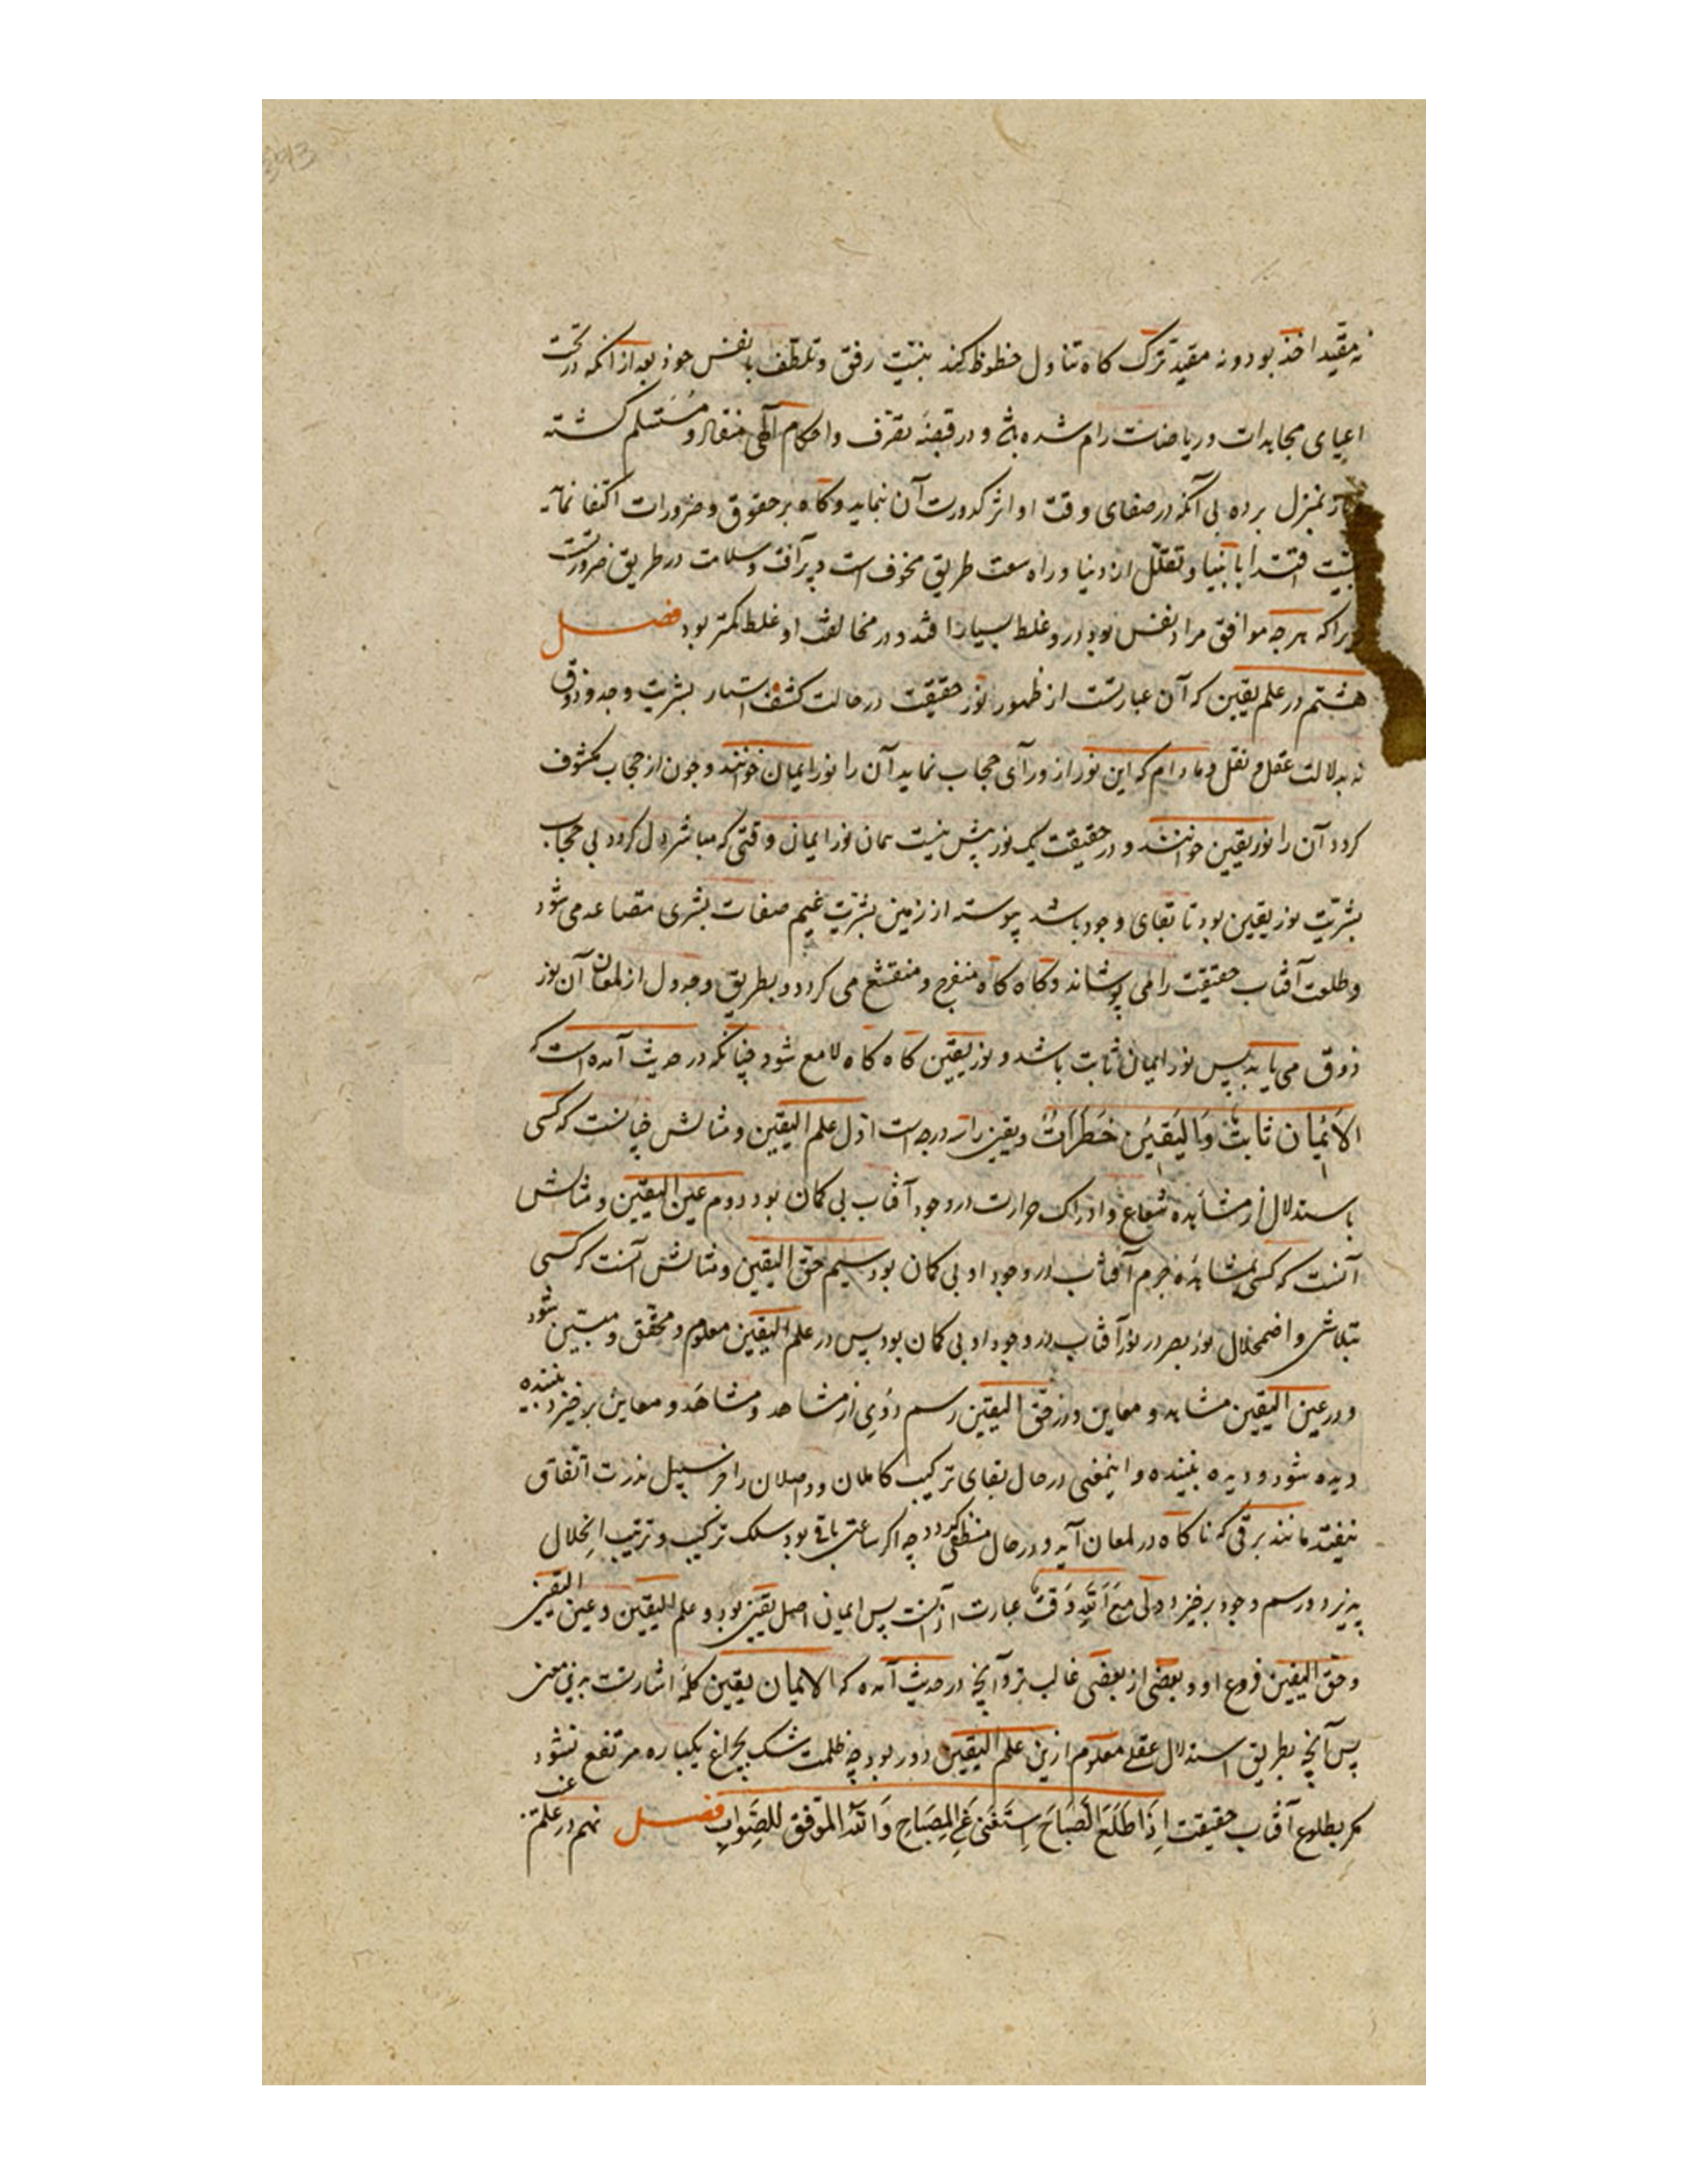 نه مقید اخذ بود و نه مقید ترک کاه تناول حظوظ کند بنیت رفق و تلطف با نفس خود بعد از آنکه در تحت
اعبای مجاهدات و ریاضات رام شده باشد و در قبضه تصرف و احکام الهی منقاد و مستسلم کشته
بمنزل برده بی آنکه در صفای وقت او اثر کدورت آن نماید و کاه بر حقوق و ضرورات اکتفا نماید
بنیت اقتدا بانبیا و تقلل از دنیا و راه سعت طریق مخوف است و پر آفت و سلامت در طریق ضرورتست
زیرا که هرچه موافق مراد نفس بود درو غلط بسیار افتد و در مخالفت او غلط کمتر بود فصل
هشتم در علم یقین که آن عبارتست از ظهور نور حقیقت در حالت کشف استار بشریت و وجد و ذوق
نه بدلالت عقل و نقل و مادام که این نور از ورای حجاب نماید آن را نور ایمان خوانند و چون از حجاب مکشوف
کردد آن را نور یقین خوانند و در حقیقت یک نور بیش نیست همان نور ایمان وقتی که مباشر دل کردد بی حجاب
بشریت نور یقین بود تا بقای وجود باشد پیوسته از زمین بشریت غیم صفات بشری متصاعد می شود
و طلعت آفتاب حقیقت را می پوشاند و کاه کاه منفرج و منقشع می کردد و بطریق وجد دل از لمعان آن نور
ذوق می یابد پس نور ایمان ثابت باشد و نور یقین کاه کاه لامع شود چنانکه در حدیث آمده است که
الاَیمان ثابتٌ وَالیَقینُ خَطَرَاتٌ و یقین را سه درجه است اول علم الیقین و مثالش چنانست که کسی
باستدلال از مشاهده شعاع و ادراک حرارت در وجود آفتاب بی کمان بود دوم عین الیقین و مثالش
آنست که کسی بمشاهده جرم آفتاب در وجود او بی کمان بود سیم حق الیقین و مثالش آنست که کسی
بتلاشی و اضمحلال نور بصر در نور آفتاب در وجود او بی کمان بود پس در علم الیقین معلوم و محقق و مبین شود
و در عین الیقین مشاهد و معاین و در حق الیقین رسم دوی از مشاهد و مشاهَد و معاین برخیزد بیننده
دیده شود و دیده بیننده و اینمعنی در حال بقای ترکیب کاملان و واصلان را جز سبیل ندرت اتفاق
نیفتد مانند برقی که ناکاه در لمعان آید و در حال منطفی کردد چه اکر ساعتی باقی بود سلک ترکیب و ترتیب انحلال
پذیرد و رسم وجود برخیزد و لِی مَعَ اَللهِ وَقتٌ عبارت از آنست پس ایمان اصل یقین بود و علم الیقین و عین الیقین
و حق الیقین فروع او و بعضی از بعضی غالب تر و آنچه در حدیث آمده که الایمان یقین کله اشارتست بدین معنی
پس آنچه بطریق استدلال عقلی معلوم ازین علم الیقین دور بود چه ظلمت شک بچراغ یکباره مرتفع نشود
مکر بطلوع آفتاب حقیقت اِذَا طَلَعَ الصَبَاحَ اِستَغنَی عَنِ المِصبَاحِ وَاَللهُ المُوَفِّقُ لِلصَّوابِ فصل نهم در علم